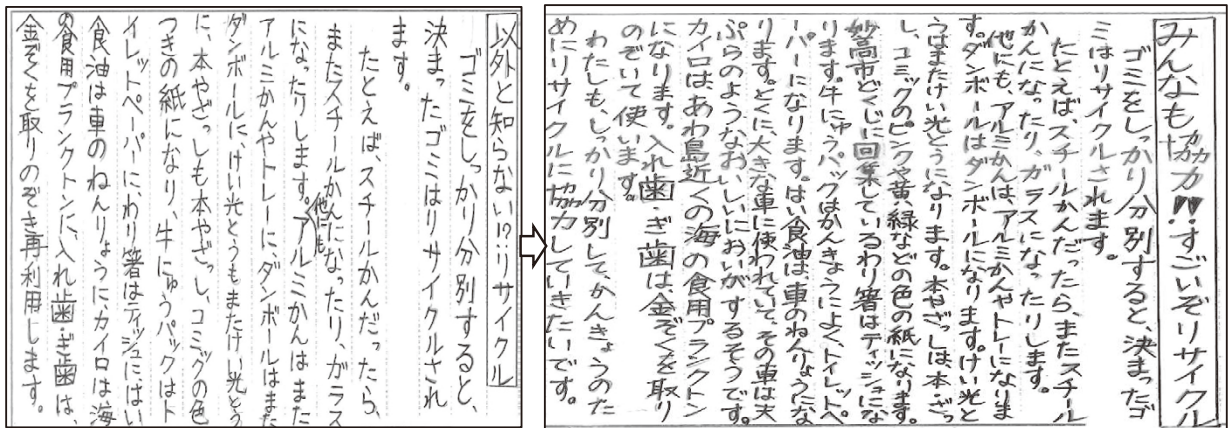 以外と知らない!?リサイクル
ゴミをしっかり分別すると、
決まったゴミはリサイクルされ
ます。
たとえば、スチールかんだったら、
またスチールかんになったり、ガラス
になったりします。他にもアルミかんはまた
アルミかんやトレーに、ダンボールはまた
ダンボールに、けい光とうもまたけい光とう
に、本やざっしも本やざっし、コミックの色
つきの紙になり、牛にゅうパックはト
イレットペーパーに、わり箸はティッシュにはい
食油は車のねんりょうにカイロは海
の食用プランクトンに、入れ歯・ぎ歯は、
金ぞくを取りのぞき再利用します。
みんなも協力!!すごいぞリサイクル
ゴミをしっかり分別すると、決まったゴ
ミはリサイクルされます。
たとえば、スチールかんだったら、またスチール
かんになったり、ガラスになったりします。
他にも、アルミかんは、アルミかんやトレーになりま
す。ダンボールはダンボールになります。けい光と
うはまたけい光とうになります。本やざっしは、本・ざっ
し、コミックのピンクや黄、緑などの色の紙になります。
妙高市どくじに回集ているわり箸はティッシュにな
ります。牛にゅうパックはかんきょうによく、トイレットペ
ーパーになります。はい食油は、車のねんりょうにな
ります。とくに、大きな車に使われていて、その車は天
ぷらのようなおいしいにおいがするそうです。
カイロは、あわ島近くの海の食用プランクトン
になります。入れ歯・ぎ歯は、金ぞくを取り
のぞいて使います。
わたしも、しっかり分別して、かんきょうのた
めにリサイクルに協力していきたいです。